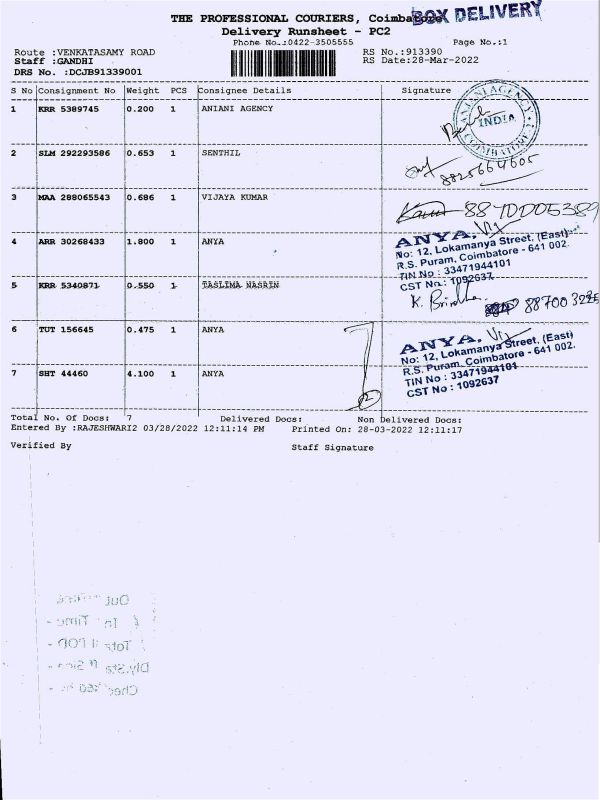 THE PROFESSIONAL COURIERS, Coimbatore
BOX DELIVERY
Delivery Runsheet - PC2
Phone No.:0422-3505555
Page No.:1
Route :VENKATASAMY ROAD
RS No.:913390
Staff :GANDHI
RS Date:28-Mar-2022
DRS No. :DCJB91339001
S No Consignment No Weight PCS Consignee Details Signature
1 KRR 5389745 0.200 1 ANIANI AGENCY
INDIA
2 SLM 292293586 0.653 1 SENTHIL
8825664605
3 MAA 288065543 0.686 1 VIJAYA KUMAR
4 ARR 30268433 1.800 1 ANYA
ANYA.
No: 12, Lokamanya Street, (East)
R.S. Puram, Coimbatore - 641 002.
TIN No : 33471944101
CST No.: 1092637
5 KRR 5340871 0.550 1 TASLIMA NASRIN
K. Brindha
6 TUT 156645 0.475 1 ANYA
ANYA.
No: 12, Lokamanya Street, (East)
R.S. Puram, Coimbatore - 641 002.
TIN No : 33471944101
CST No : 1092637
7 SHT 44460 4.100 1 ANYA
Total No. Of Docs: 7 Delivered Docs: Non Delivered Docs:
Entered By :RAJESHWARI2 03/28/2022 12:11:14 PM Printed On: 28-03-2022 12:11:17
Verified By Staff Signature